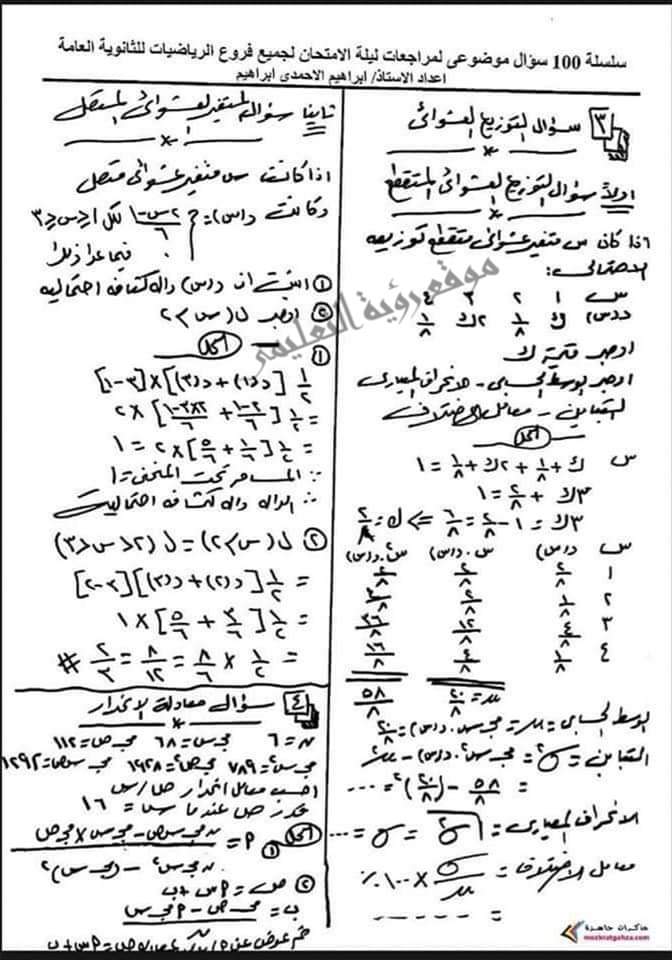 سلسلة 100 سؤال موضوعى لمراجعات ليلة الامتحان لجميع فروع الرياضيات للثانوية العامة
اعداد الاستاذ/ ابراهيم الاحمدى ابراهيم
٣ سؤال التوزيع العشوائى
اولاً سؤال التوزيع العشوائى المتقطع
اذا كان س متغير عشوائى متقطع توزيعه
الاحتمالى:
س ١ ٢ ٣ ٤
د(س) ك ١/٨ ٢ك ١/٨
اوجد قيمة ك
اوجد الوسط الحسابى - الانحراف المعيارى
التباين - معامل الاختلاف
الحل
ك + ١/٨ + ٢ك + ١/٨ = ١
٣ك + ٢/٨ = ١
٣ك = ١ - ٢/٨ = ٦/٨ => ك = ٢/٨
س د(س) س.د(س) س٢.د(س)
١ ٢/٨ ٢/٨ ٢/٨
٢ ١/٨ ٢/٨
٣ ٤/٨ ١٢/٨ ٣٦/٨
٤ ١/٨ ٤/٨ ١٦/٨
٢٠/٨ ٥٨/٨
الوسط الحسابى = μ = مجـ س.د(س) = ٢٠/٨
التباين = σ٢ = مجـ س٢.د(س) - μ٢
= ٥٨/٨ - (٢٠/٨)٢ = ...
الانحراف المعيارى = σ = √σ٢ = ...
معامل الاختلاف = σ/μ × ١٠٠٪
= ......
ثانيا سؤال المتغير العشوائى المتصل
اذا كانت س متغير عشوائى متصل
وكانت د(س) = { (٢س-١)/٦ لكل ١≤س≤٣
٠ فيما عدا ذلك
١ اثبت ان د(س) دالة كثافة احتمالية
٢ اوجد ل(س>٢)
الحل
١
١/٢ [د(١) + د(٣)] × [٣-١]
= ١/٢ [(٢-١)/٦ + (٢×٣-١)/٦] × ٢
= ١/٢ [١/٦ + ٥/٦] × ٢ = ١
∵ المساحة تحت المنحنى = ١
∴ الدالة دالة كثافة احتمالية
٢ ل(س>٢) = ل(٢<س<٣)
= ١/٢ [د(٢) + د(٣)] [٣-٢]
= ١/٢ [٣/٦ + ٥/٦] × ١
= ١/٢ × ٨/٦ = ٨/١٢ = ٢/٣ #
٤ سؤال معادلة الانحدار
ن = ٦ مجـ س = ٦٨ مجـ ص = ١١٢
مجـ س٢ = ٧٨٩ مجـ ص٢ = ١٩٢٨ مجـ س ص = ١٢٩٢
احسب معامل انحدار ص/س
قدر ص عندما س = ١٦
الحل
١ م = (ن مجـ س ص - مجـ س × مجـ ص) / (ن مجـ س٢ - (مجـ س)٢)
٢ ص = م س + ب
ب = (مجـ ص - م مجـ س) / ن
موقع رؤية التعليمى
مذكرات جاهزة
mozkratgahza.com